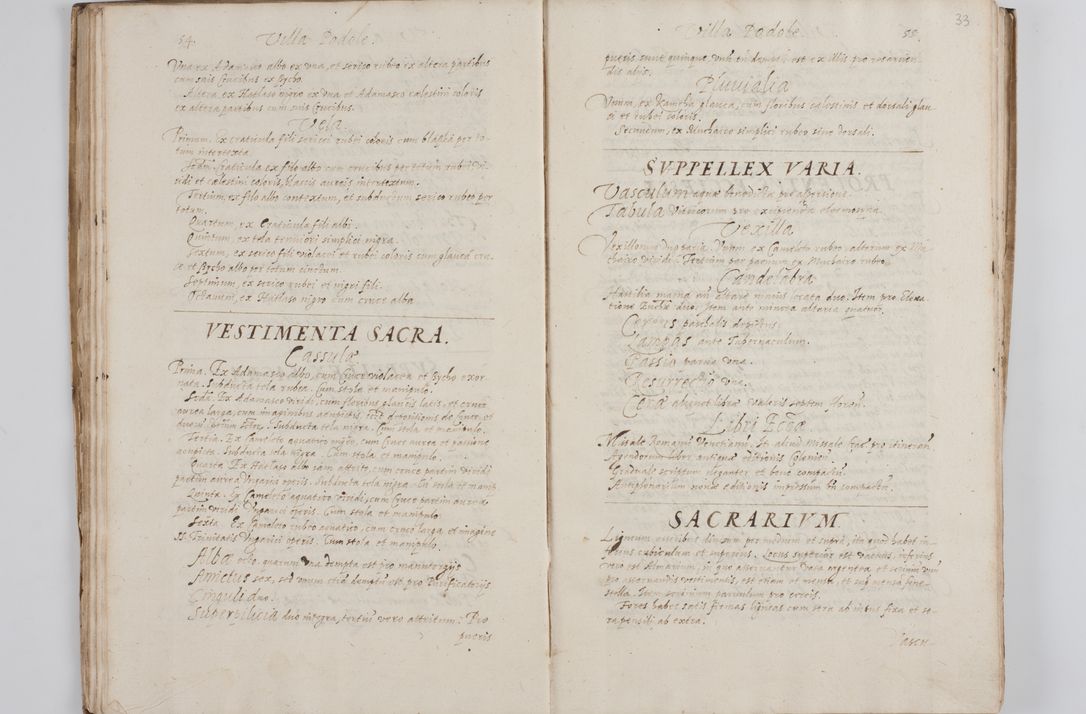 54.
Villa Podole.
Una ex Adamasco albo ex una, et serico rubro ex altera partibus
cum suis Crucibus ex Sycho.
Altera, ex Hatlaso nigro ex una et Adamasco cælestini coloris
ex altera partibus cum suis Crucibus.
Vela.
Primum. Ex craticula fili sericei rubri coloris cum blassia per to-
tum intertexta.
Sedm. Craticula ex filo albo cum crucibus per totum rubri, vi-
ridi et cælestini coloris, blassis aureis intertextum.
Tertium, ex filo albo contextum, et subductum serico rubro per
totum.
Quartum, ex Craticula fili albi.
Quintum, ex tela tenuiori simplici nigra.
Sextum, ex serico fili violacei et rubri coloris cum glauca cru-
ce et Sycho albo per totum cinctum.
Septimum, ex serico rubei et nigri fili.
Octavum, ex Hatlaso nigro cum cruce alba.
VESTIMENTA SACRA.
Cassula
Prima. Ex Adamasco albo, cum Cruce violacea et Sycho exor-
nata. Subducta tela rubra. Cum stola et manipulo.
Scda. Ex Adamasco viridi, cum floribus glaucis latis, et cruce
aurea larga, cum imaginibus acupictis, depositionis de Cruce, et
duorum Subducta tela nigra. Cum stola et manipulo.
Tertia. Ex Cameloto aquatico nigro, cum Cruce aurea et passione
acupicta. Subducta tela nigra. Cum stola et manipulo.
Quarta. Ex Hatlaso albo iam attrito, cum cruce partim viridi
partim aurea Ungarici operis. Subducta tela nigra. Cū stola et manip.
Quinta. Ex Cameloto aquatico viridi, cum Cruce partim aurea
partim viridi Ungarici operis. Cum stola et manipulo.
Sexta. Ex Cameloto rubro aquatico, cum cruce larga, et imagine
SS. Trinitatis Ungarici operis. Cum stola et manipulo.
Albæ octo, quarum una dempta est pro manutergijs
Amictus sex, sed unum etiā demptū est pro Purificatorijs
Cinguli duo.
Superpilicia duo integra, tertiū vero attritum. Pro
pueris
33
Villa Podole
55.
pueris sunt quinque, unū tn̄ dempt. est ex illis pro resarcien-
dis alijs.
Pluvialia
Unum, ex Kamcha glauca, cum floribus cælestinis et dorsali glau-
ci et rubei coloris.
Secundum, ex Muchairo simplici rubro, sine dorsali.
SUPPELLEX VARIA.
Vasculum aquæ benedictæ pro aspersione.
Tabula Vitricorum pro excipienda elemosyna.
Vexilla
Vexillorum duo paria. Unum ex Cameloto rubro, alterum ex Mu-
chairo viridi. Tertium par parvum ex Muchairo rubro.
Candelabra
Hastilia magna an̄ altare maius locata duo. Item pro Eleva-
tione Euchæ duo. Item ante minora altaria quatuor.
Cereus paschalis depictus.
Lampas ante Tabernaculum.
Passio parva una.
Resurrectio una.
Cera aliquot libræ valoris septem floren.
Libri Ecc̄æ
Missale Romanū Venetianū. It. aliud Missale pro itineran.
Agendorum liber antiquæ editionis Coloniens.
Graduale scriptum eleganter et bene compactū.
Antiphonarium novæ editionis impressum bn̄ compactū.
SACRARIUM
Ligneum asseribus divisum per medium et supra, ita quod habet in-
ferius cubiculum et superius. Locus superior est vacuus, inferius
vero est Almarium, in quo asservantur Vasa argentea, et scrinium unū
pro asservandis vestimentis, est etiam et mensa, et sup mensa fene-
stella. Item scrinium parvulum pro cereis.
Fores habet satis firmas ligneas cum sera ab intus fixa et se-
ra pensili ab extra.